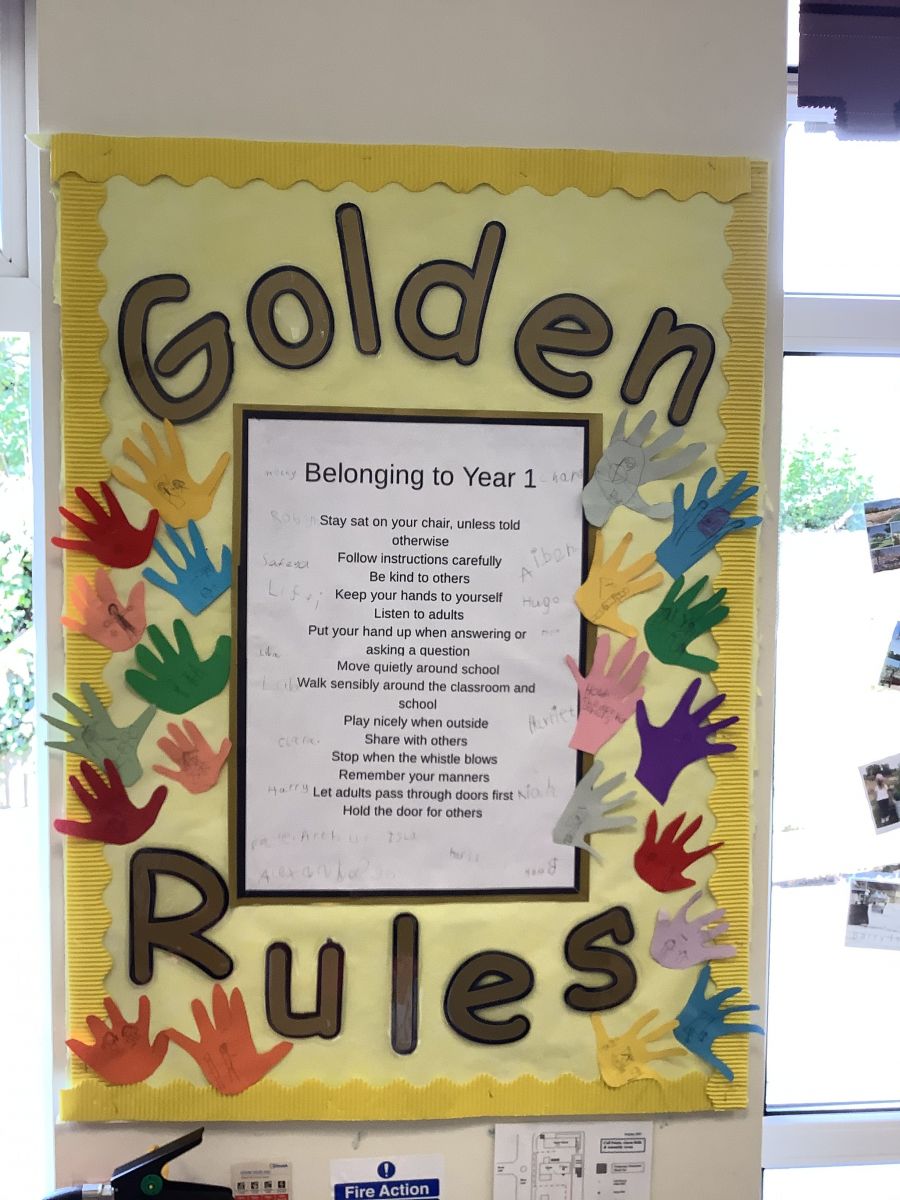 Golden
Belonging to Year 1
Stay sat on your chair, unless told
otherwise
Follow instructions carefully
Be kind to others
Aiben
Keep your hands to yourself
Hugo
Listen to adults
Put your hand up when answering or
asking a question
Move quietly around school
Walk sensibly around the classroom and
school
Play nicely when outside
Harriet
Share with others
Clara.
Stop when the whistle blows
Remember your manners
Harry
Let adults pass through doors first
Niah
Hold the door for others
Isla
Rules
Fire Action